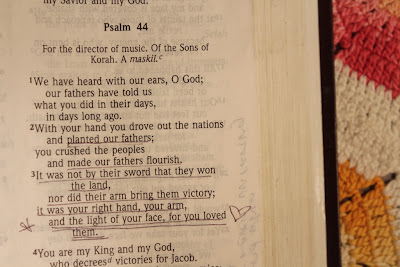 my Savior and my God.
Psalm 44
For the director of music. Of the Sons of
Korah. A maskil.c
1We have heard with our ears, O God;
our fathers have told us
what you did in their days,
in days long ago.
2With your hand you drove out the nations
and planted our fathers;
you crushed the peoples
and made our fathers flourish.
3It was not by their sword that they won
the land,
nor did their arm bring them victory;
it was your right hand, your arm,
and the light of your face, for you loved
them.
4You are my King and my God,
who decreesd victories for Jacob.